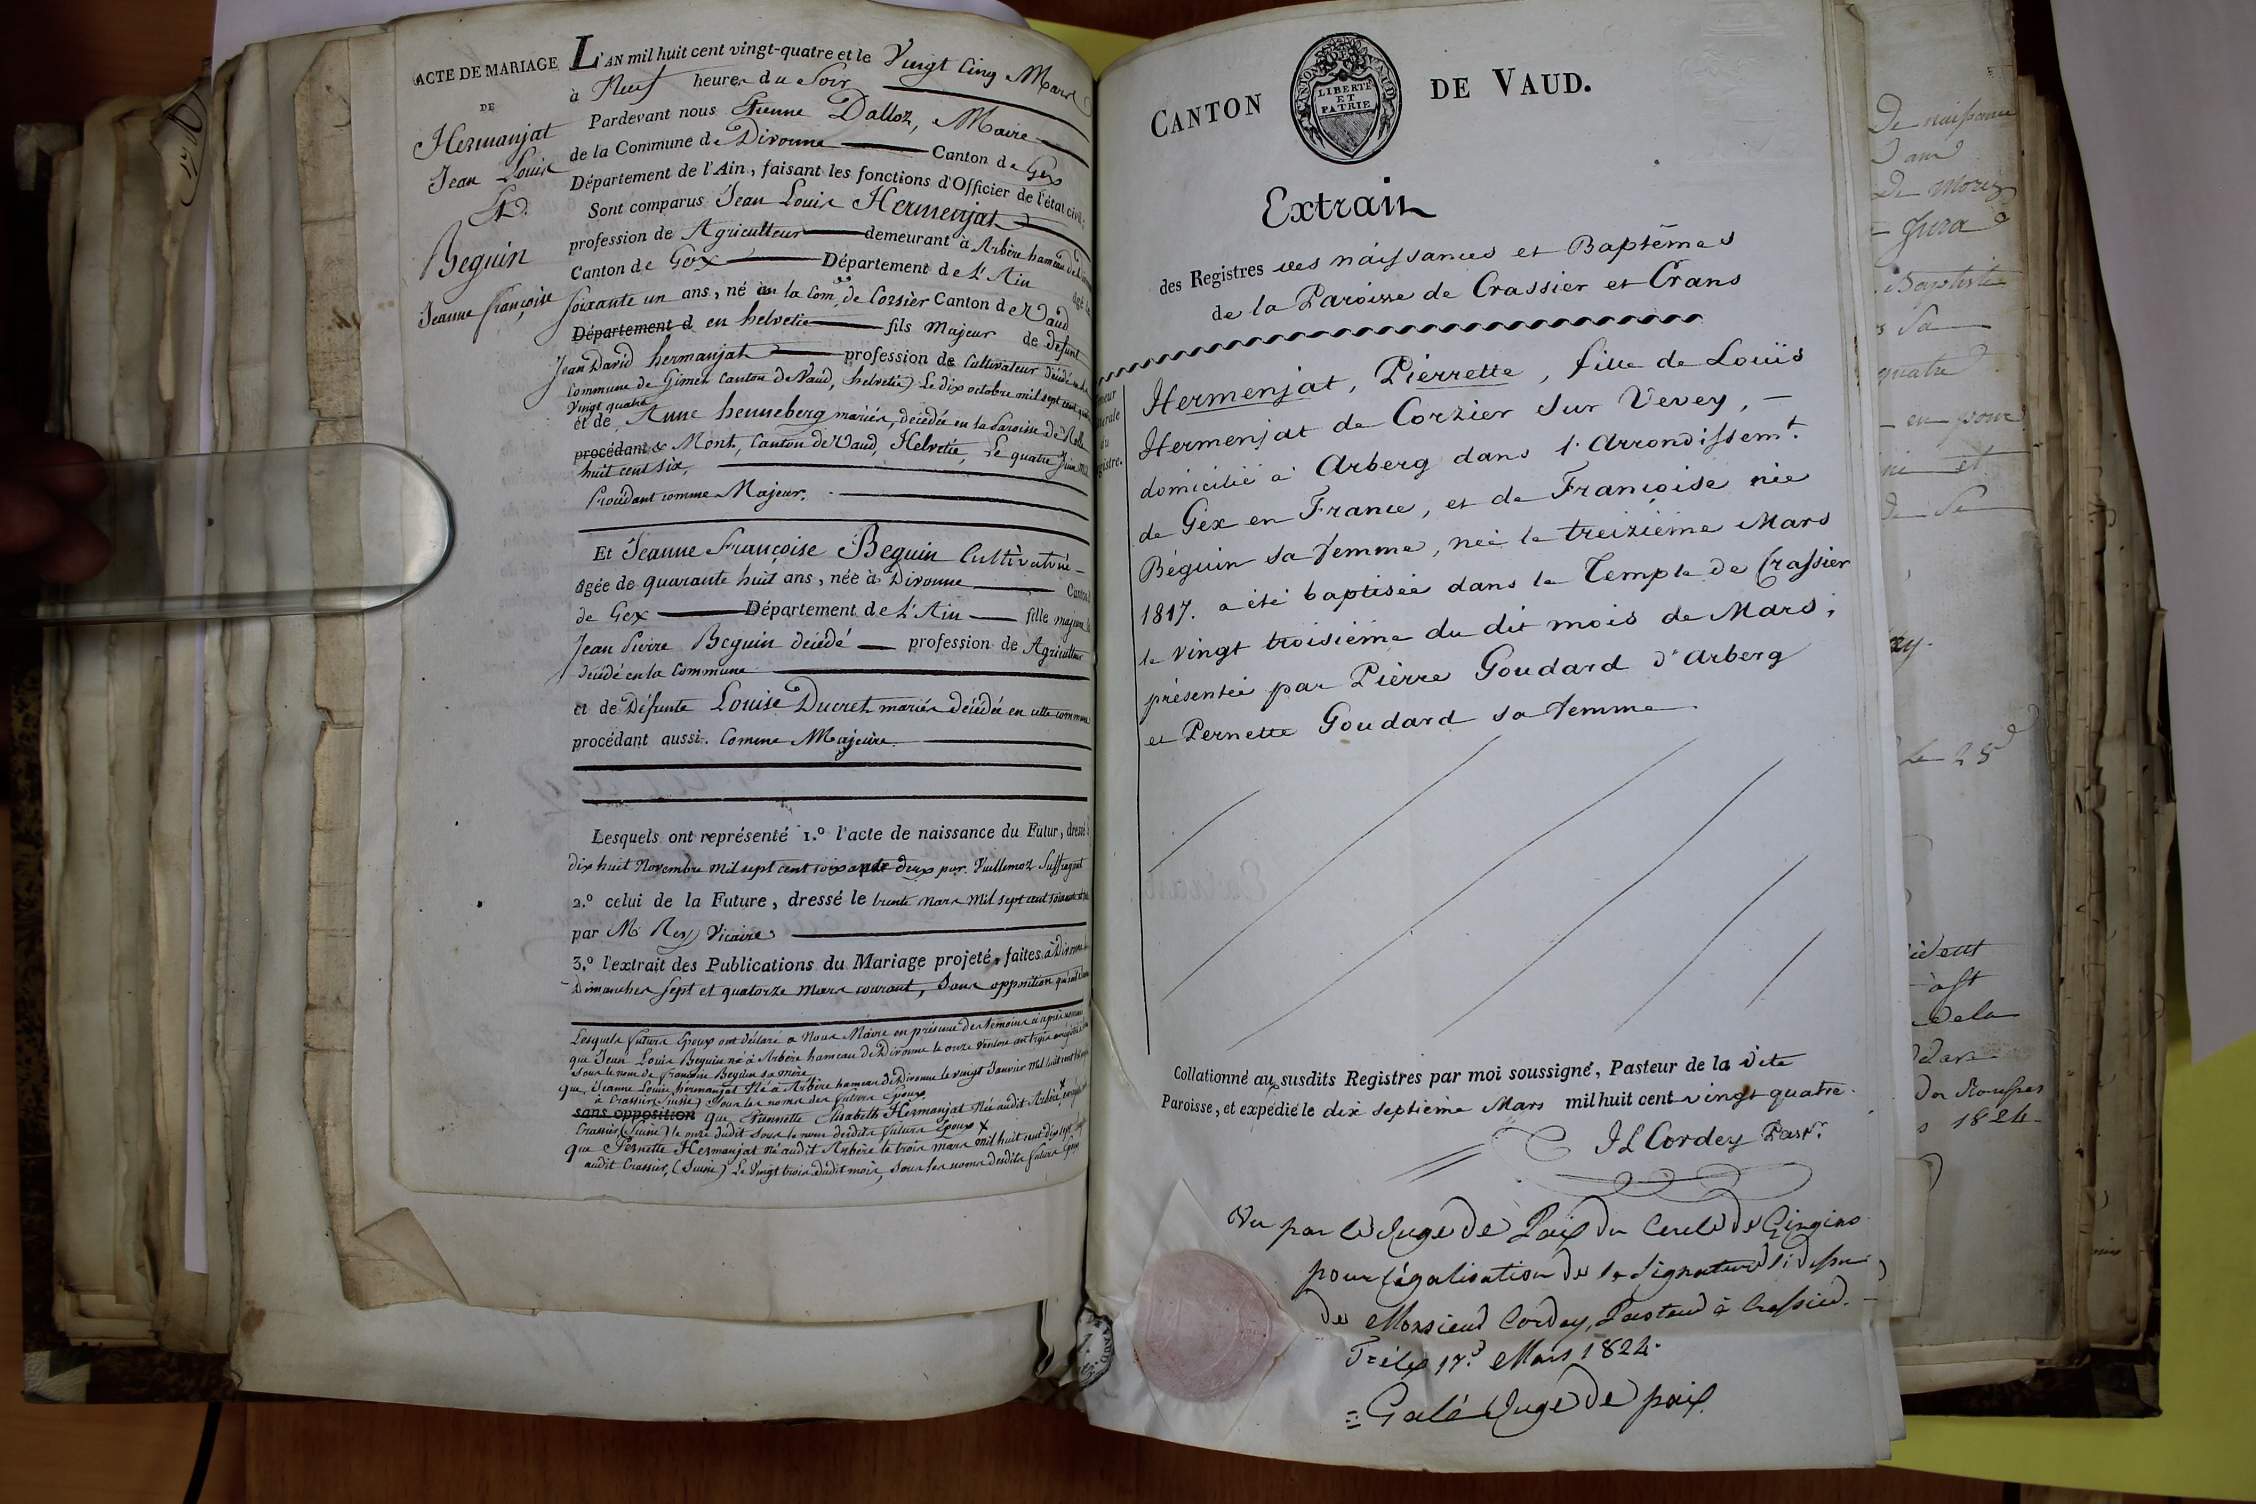 ACTE DE MARIAGE
DE
Hermanjat
Jean Louis
Et
Beguin
Jeanne françoise
L'AN mil huit cent vingt-quatre et le Vingt Cinq Mars
à Neuf heures du Soir
Pardevant nous Etienne Dalloz, Maire
de la Commune de Divonne Canton de Gex
Département de l'Ain, faisant les fonctions d'Officier de l'état civil
Sont comparus Jean Louis Hermenjat
profession de Agriculteur demeurant à Arbère hameau de
Canton de Gex Département de L'Ain âgé de
soixante un ans, né en la Com.ne de Corsier Canton de Vaud
Département d en helvetie fils Majeur de defunt
Jean David hermanjat profession de Cultivateur décédé
Commune de Gimel Canton de Vaud, helvetie) Le dix octobre mil sept cent
Vingt quatre
et de Anne henneberg mariés, décédée en la Paroisse de Rolle
procédant & Mont, Canton de Vaud, Helvetie, Le quatre Juin Mil
huit cent six,
Procédant comme Majeur.
Et Jeanne Françoise Beguin Cultivatrice
âgée de quarante huit ans, née à Divonne Canton
de Gex Département de L'Ain fille majeure de
Jean Pierre Beguin décédé profession de Agriculteur
décédé en la Commune
et de Défunte Louise Ducret mariés décédée en cette commune
procédant aussi. Comme Majeure.
Lesquels ont représenté 1.º l'acte de naissance du Futur, dressé
dix huit Novembre mil sept cent soixante deux par Vuillemoz Suffragant
2.º celui de la Future, dressé le trente mars mil sept cent soixante
par M Rey Vicaire
3.º l'extrait des Publications du Mariage projeté, faites à Divonne
Dimanches sept et quatorze mars courant, sans opposition
Lesquels futurs Epoux ont déclaré a Nous Maire en présence des témoins ci après
que Jean Louis Beguin né à Arbère hameau de Divonne le onze Ventose an treize
sous le nom de françoise Beguin sa mère
que Jeanne Louise hermanjat Né à Arbère hameau de Divonne le vingt Janvier mil huit cent
à Crassier (Suisse) sous les noms des futurs Epoux
sans opposition que Pernette Elisabeth Hermanjat Née audit Arbère
Crassier (Suisse) le onze dudit sous le nom desdits futurs Epoux X
que Pernette Hermanjat né audit Arbère le trois mars mil huit cent dix sept
audit Crassier, (Suisse) Le Vingt trois dudit mois, sous les noms desdits futurs Epoux
CANTON DE VAUD.
CANTON DE VAUD
LIBERTÉ
ET
PATRIE
Extrait
des Registres des naissances et Baptêmes
de la Paroisse de Crassier et Crans
Hermenjat, Pierrette, fille de Louïs
Hermenjat de Corzier sur Vevey, –
domicilié à Arberg dans l'Arrondissem.t
de Gex en France, et de Françoise née
Béguin sa femme, née le treizième Mars
1817. a été baptisée dans le Temple de Crassier
le vingt troisième du dit mois de Mars;
présentée par Pierre Goudard d'Arberg
et Pernette Goudard sa femme
Collationné au susdits Registres par moi soussigné, Pasteur de la dite
Paroisse, et expédié le dix septième Mars mil huit cent vingt quatre.
JL Cordey Past.r
Vu par le Juge de Paix du Cercle de Gingins
pour légalisation de la signature ci dessus
de Monsieur Cordey, Pasteur à Crassier. –
Trélex 17.e Mars 1824.
Galé Juge de paix
De naissance
De Morez
Jura
Baptiste
quatre
en pour
Le 25
dela
1824